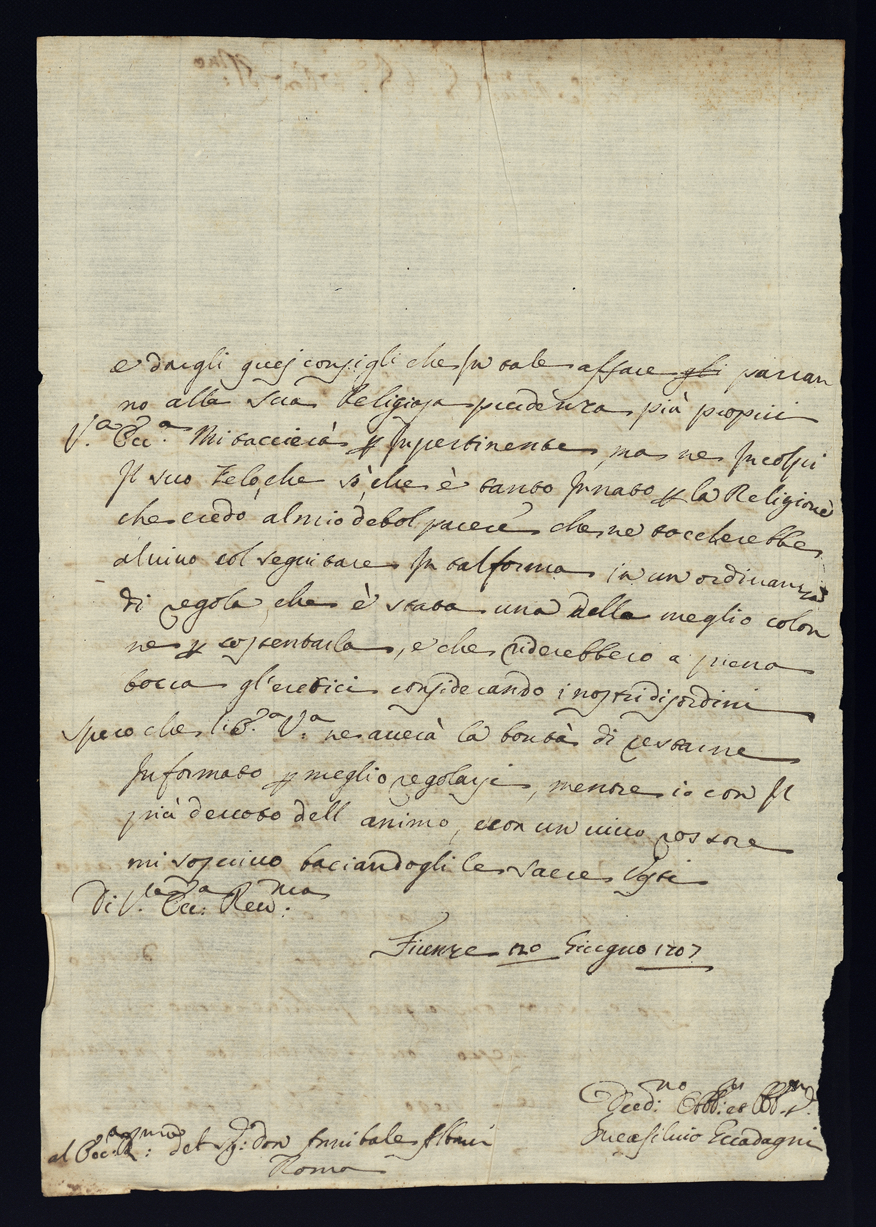 e dargli quej consigli che In tale affare gli parran
no alla sua Religiosa prudenza più proprii
V.ª Ecc.ª Mi taccierà p Inpertinente, ma ne Incolpi
Il suo Zelo, che sò, che è tanto Innato p la Religione
che credo, al mio debol parere che ne toccherebbe
al vivo col seguitare In tal forma in un ordinanza
di regola, che è stata una della meglio colon
ne p sostentarla, e che riderebbero a piena
bocca gl'eretici considerando i nostri disordini
Spero che l'Ec.ª V.ª ne averà la bontà di restarne
Informato p meglio regolarsi, mentre io con Il
più devoto dell animo, e con un vivo rossore
mi soscrivo baciandogli le sacre Vesti
Di V.ª Ecc.ª Rev.ma
Firenze Giugno 1707
al Sig: don Annibale Albani
Roma
Silvio Guadagni